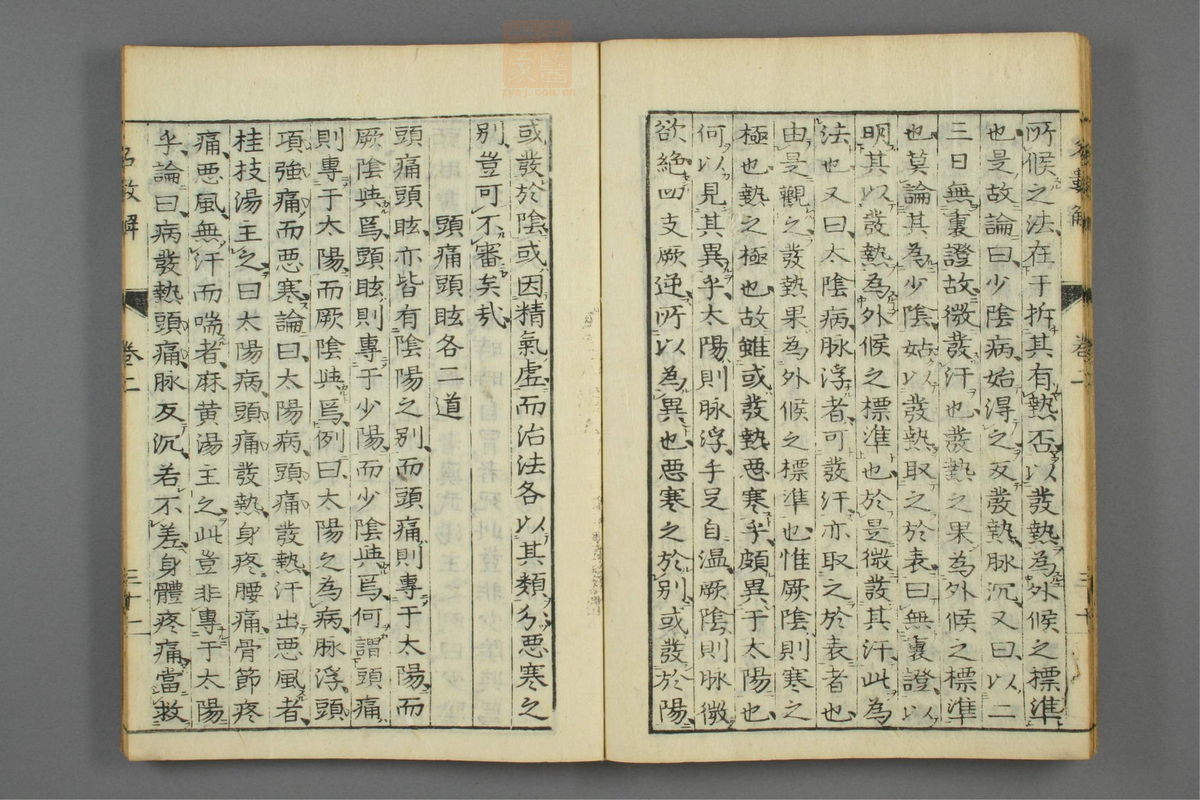 所候之法在于拆其有熱否以發熱為外候之標準
也是故論曰少陰病始得之反發熱脉沉又曰以二
三日無裏證故微發汗也發熱之果為外候之標準
也莫論其為少陰姑以發熱取之於表曰無裏證以
明其以發熱為外候之標準也於是微發其汗此為
法也又曰太陰病脉浮者可發汗亦取之於表者也
由是觀之發熱果為外候之標準也惟厥陰則寒之
極也熱之極也故雖或發熱惡寒乎頗異于太陽也
何以見其異乎太陽則脉浮手足自温厥陰則脉微
欲絶四支厥逆所以為異也惡寒之於別或發於陽
或發於陰或因精氣虚而治法各以其類分惡寒之
別豈可不審矣哉
頭痛頭眩各二道
頭痛頭眩亦皆有陰陽之別而頭痛則專于太陽而
厥陰與焉頭眩則專于少陽而少陰與焉何謂頭痛
則專于太陽而厥陰與焉例曰太陽之為病脉浮頭
項強痛而惡寒論曰太陽病頭痛發熱汗出惡風者
桂枝湯主之曰太陽病頭痛發熱身疼腰痛骨節疼
痛惡風無汗而喘者麻黄湯主之此豈非專于太陽
乎論曰病發熱頭痛脉反沉若不差身體疼痛當救
卷二
三十一